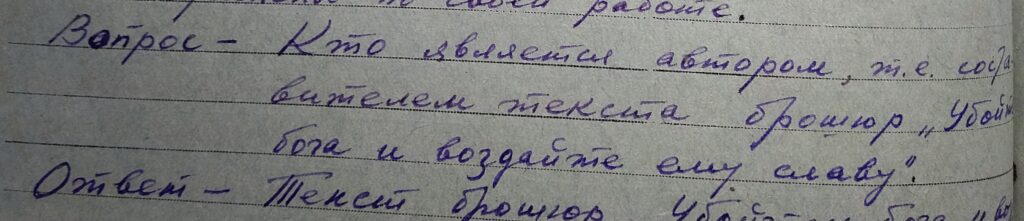 по своей работе.
Вопрос – Кто является автором, т.е. соста
вителем текста брошюр „Убойте
бога и воздайте ему славу".
Ответ – Текст брошюр „Убойтесь бога" и